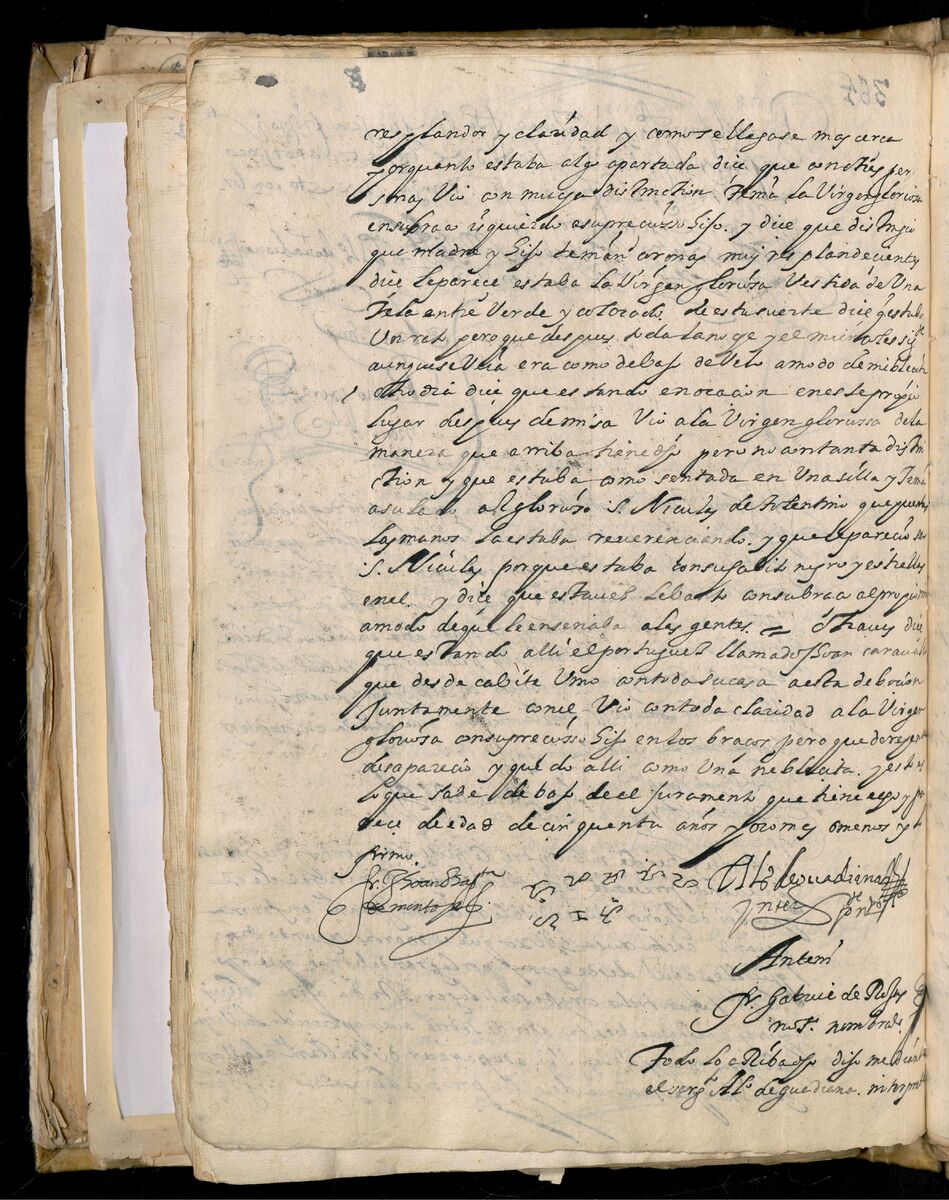 resplandor y claridad y como se llegase mas cerca
porquanto estaba algo apartada dice que con otras per
sonas Vio con mucha distinction tenia la Virgen gloriosa
en su braco isquierdo a su precioso hijo. y dice que distinguio
que madre y hijo tenian coronas muy resplandecientes
dice le parece estaba la Virgen gloriosa Vestida de Una
tela entre Verde y colorado. de esta suerte dice q estubo
Un rato, pero que despues toda la noche y el
aunque se Veia era como debajo de Velo a modo de nieblecita
otro dia dice que estando en oracion en este propio
lugar despues de misa Vio a la Virgen gloriossa de la
manera que arriba tiene dho pero no con tanta distin
tion y que estaba como sentada en Una silla y tenia
a su lado al glorioso S. Nicolas de tolentino que puestas
las manos la estaba reverenciando. y que le parecio ser
S. Nicolas porque estaba con su habito negro y estrellas
en el. y dice que esta vez lebanto con su braco al propio
a modo de que le enseñaba a las gentes. = otra ves dice
que estando alli el portugues llamado Joan carauallo
que desde cabite Vino con toda su casa a esta debocion
Juntamente con el Vio con toda claridad a la Virgen
gloriosa con su precioso hijo en los bracos pero que de repente
desaparecio y quedo alli como Una nieblecita. y esto es
lo que sabe debajo de el Juramento que tiene echo y pa
rece de edad de cinquenta años poco mas o menos y lo
firmo.
fr. Jhoan Bap.ta
de
Alo de guadiana
Inter
Ante mi
fr. Gabriel de
not.o nombrado
Todo lo aRiba dho dijo mediante
el sarg.to Alo de guadiana. interprete